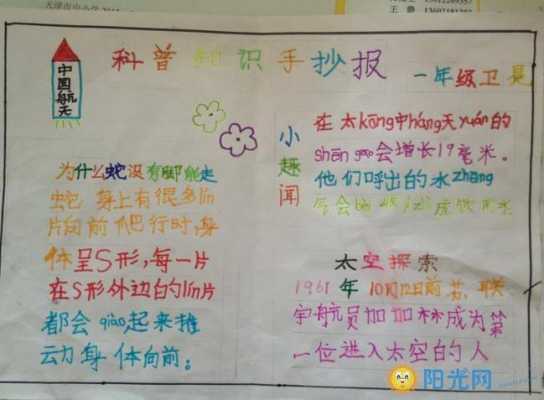 科普知识手抄报
一年级卫昊
中国航天
为什么蛇没有脚能走
蛇身上有很多lín
片向前爬行时,身
体呈S形,每一片
在S形外边白的lín片
都会qiào起来推
动身体向前。
小趣闻
在太kōng中háng天yuán的
shēn gāo会增长19毫米。
他们呼出的水zhēng
太空探索
1961年10月12日前苏联
宇航员加加林成为第
一位进入太空的人
阳光网